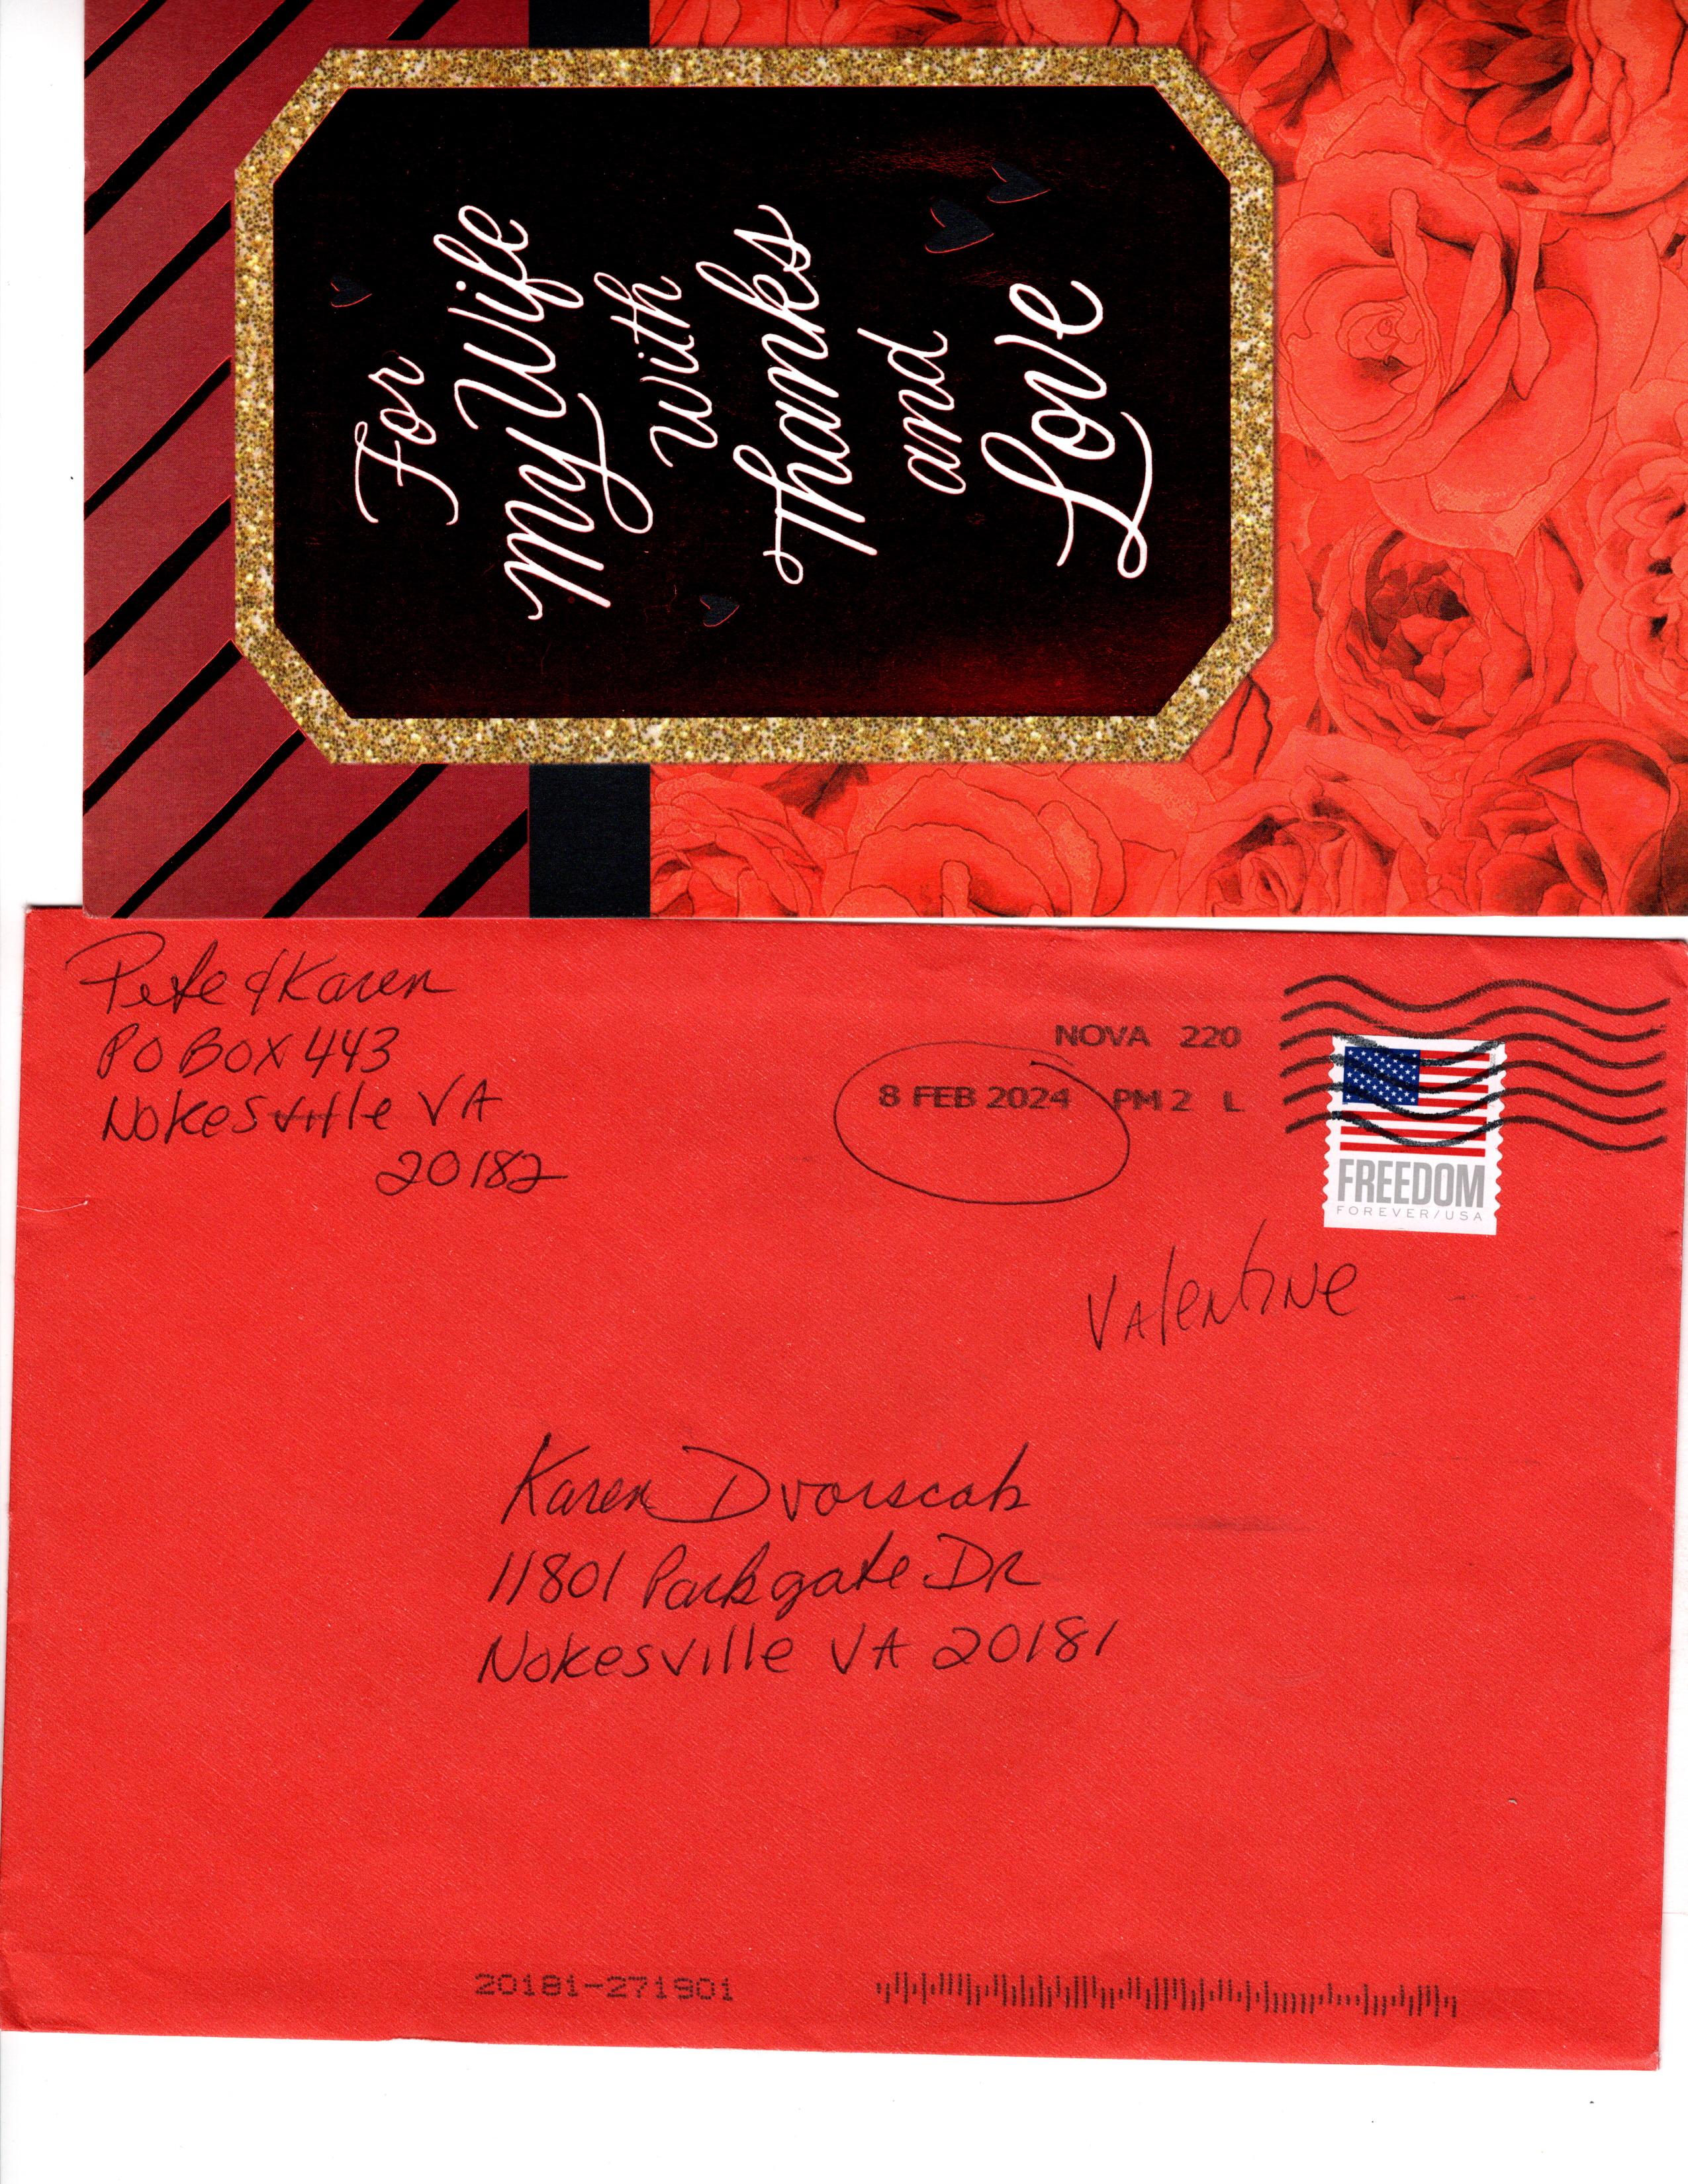 For
My Wife
with
Thanks
and
Love
Pete & Karen
PO BOX 443
Nokesville VA
20182
NOVA 220
8 FEB 2024 PM 2 L
FREEDOM
FOREVER/USA
Valentine
Karen Dvorscak
11801 Parkgate DR
Nokesville VA 20181
20181-271901